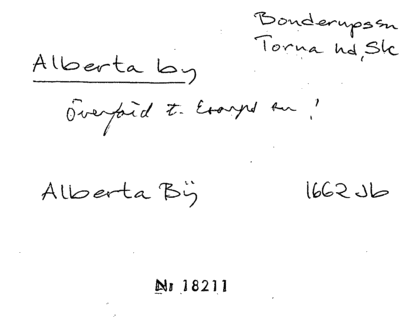 Bonderupssn
Torna hd, Sk
Alberta by
Överförd t. Esarps sn!
Alberta Bÿ 1662 Jb
Nr 18211